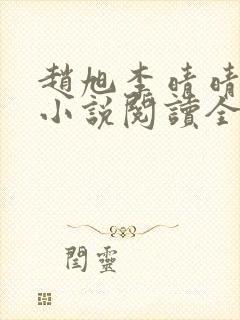 趙旭李晴晴
小說閱讀全
閆靈